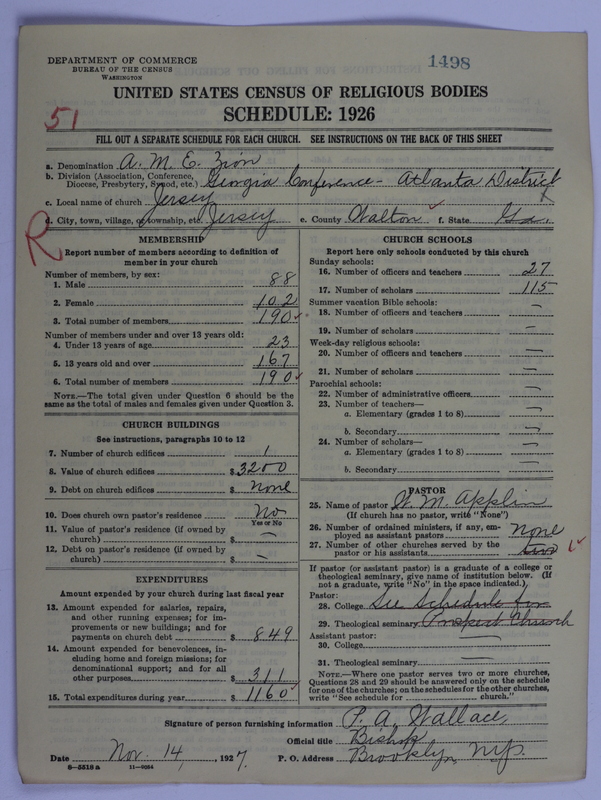 DEPARTMENT OF COMMERCE
BUREAU OF THE CENSUS
WASHINGTON
1498
UNITED STATES CENSUS OF RELIGIOUS BODIES
SCHEDULE: 1926
51
FILL OUT A SEPARATE SCHEDULE FOR EACH CHURCH. SEE INSTRUCTIONS ON THE BACK OF THIS SHEET
a. Denomination A. M. E. Zion
b. Division (Association, Conference, Diocese, Presbytery, Synod, etc.) Georgia Conference - Atlanta District
c. Local name of church Jersey
d. City, town, village, or township, etc. Jersey e. County Walton f. State Ga.
R
MEMBERSHIP
Report number of members according to definition of
member in your church
Number of members, by sex:
1. Male 88
2. Female 102
3. Total number of members 190
Number of members under and over 13 years old:
4. Under 13 years of age 23
5. 13 years old and over 167
6. Total number of members 190
NOTE.—The total given under Question 6 should be the
same as the total of males and females given under Question 3.
CHURCH BUILDINGS
See instructions, paragraphs 10 to 12
7. Number of church edifices 1
8. Value of church edifices $3200
9. Debt on church edifices $ none
10. Does church own pastor's residence No
Yes or No
11. Value of pastor's residence (if owned by
church) $ —
12. Debt on pastor's residence (if owned by
church) $ —
EXPENDITURES
Amount expended by your church during last fiscal year
13. Amount expended for salaries, repairs,
and other running expenses; for im-
provements or new buildings; and for
payments on church debt $ 849
14. Amount expended for benevolences, in-
cluding home and foreign missions; for
denominational support; and for all
other purposes $ 311
15. Total expenditures during year $ 1160
CHURCH SCHOOLS
Report here only schools conducted by this church
Sunday schools:
16. Number of officers and teachers 27
17. Number of scholars 115
Summer vacation Bible schools:
18. Number of officers and teachers —
19. Number of scholars —
Week-day religious schools:
20. Number of officers and teachers —
21. Number of scholars —
Parochial schools:
22. Number of administrative officers —
23. Number of teachers—
a. Elementary (grades 1 to 8) —
b. Secondary —
24. Number of scholars—
a. Elementary (grades 1 to 8) —
b. Secondary —
PASTOR
25. Name of pastor W. M. Applin
(If church has no pastor, write "None")
26. Number of ordained ministers, if any, em-
ployed as assistant pastors None
27. Number of other churches served by the
pastor or his assistants
If pastor (or assistant pastor) is a graduate of a college or
theological seminary, give name of institution below. (If
not a graduate, write "No" in the space indicated.)
Pastor:
28. College See Schedule for
29. Theological seminary Prospect Church
Assistant pastor:
30. College —
31. Theological seminary —
NOTE.—Where one pastor serves two or more churches,
Questions 28 and 29 should be answered only on the schedule
for one of the churches; on the schedules for the other churches,
write "See schedule for church."
Signature of person furnishing information P. A. Wallace
Official title Bishop
Date Nov. 14, 1927. P. O. Address Brooklyn, N.Y.
8—5518 a 11—9084